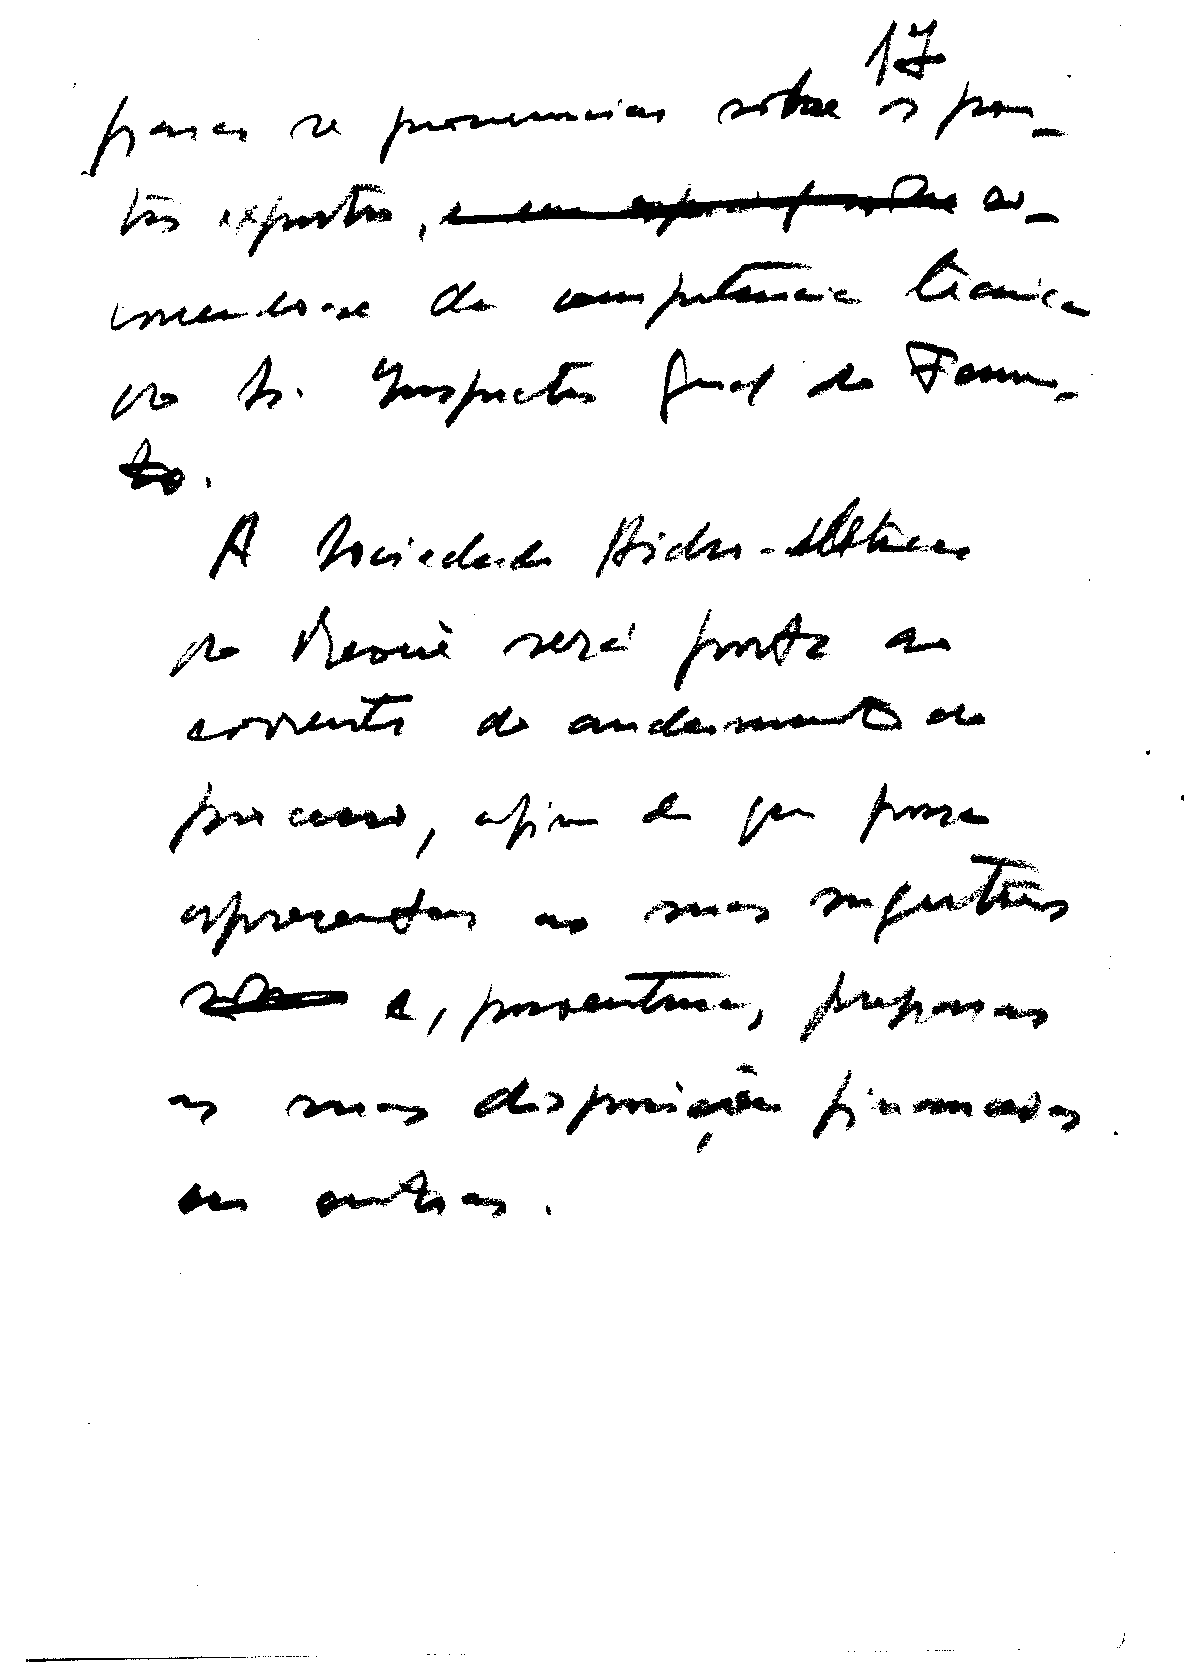 17
para se pronunciar sobre os pon-
tos expostos, e em especial sobre as-
do Sr. Inspector Geral do Fomen-
to.
A Sociedade Hidro-eléctrica
do Revué será posta ao
corrente do andamento do
processo, afim de que possa
apresentar as suas sugestões
e, porventura, preparar
as suas disposições financeiras
ou outras.